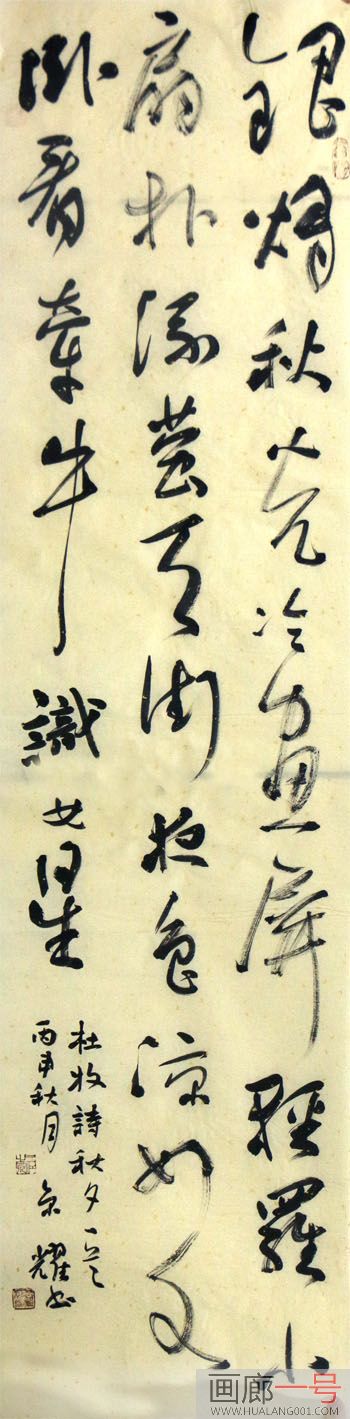 銀燭秋光冷畫屏輕羅小
扇扑流螢天街夜色涼如水
臥看牽牛識女星
杜牧詩秋夕一首
丙申秋月京耀书
画廊一号
WWW.HUALANG001.COM